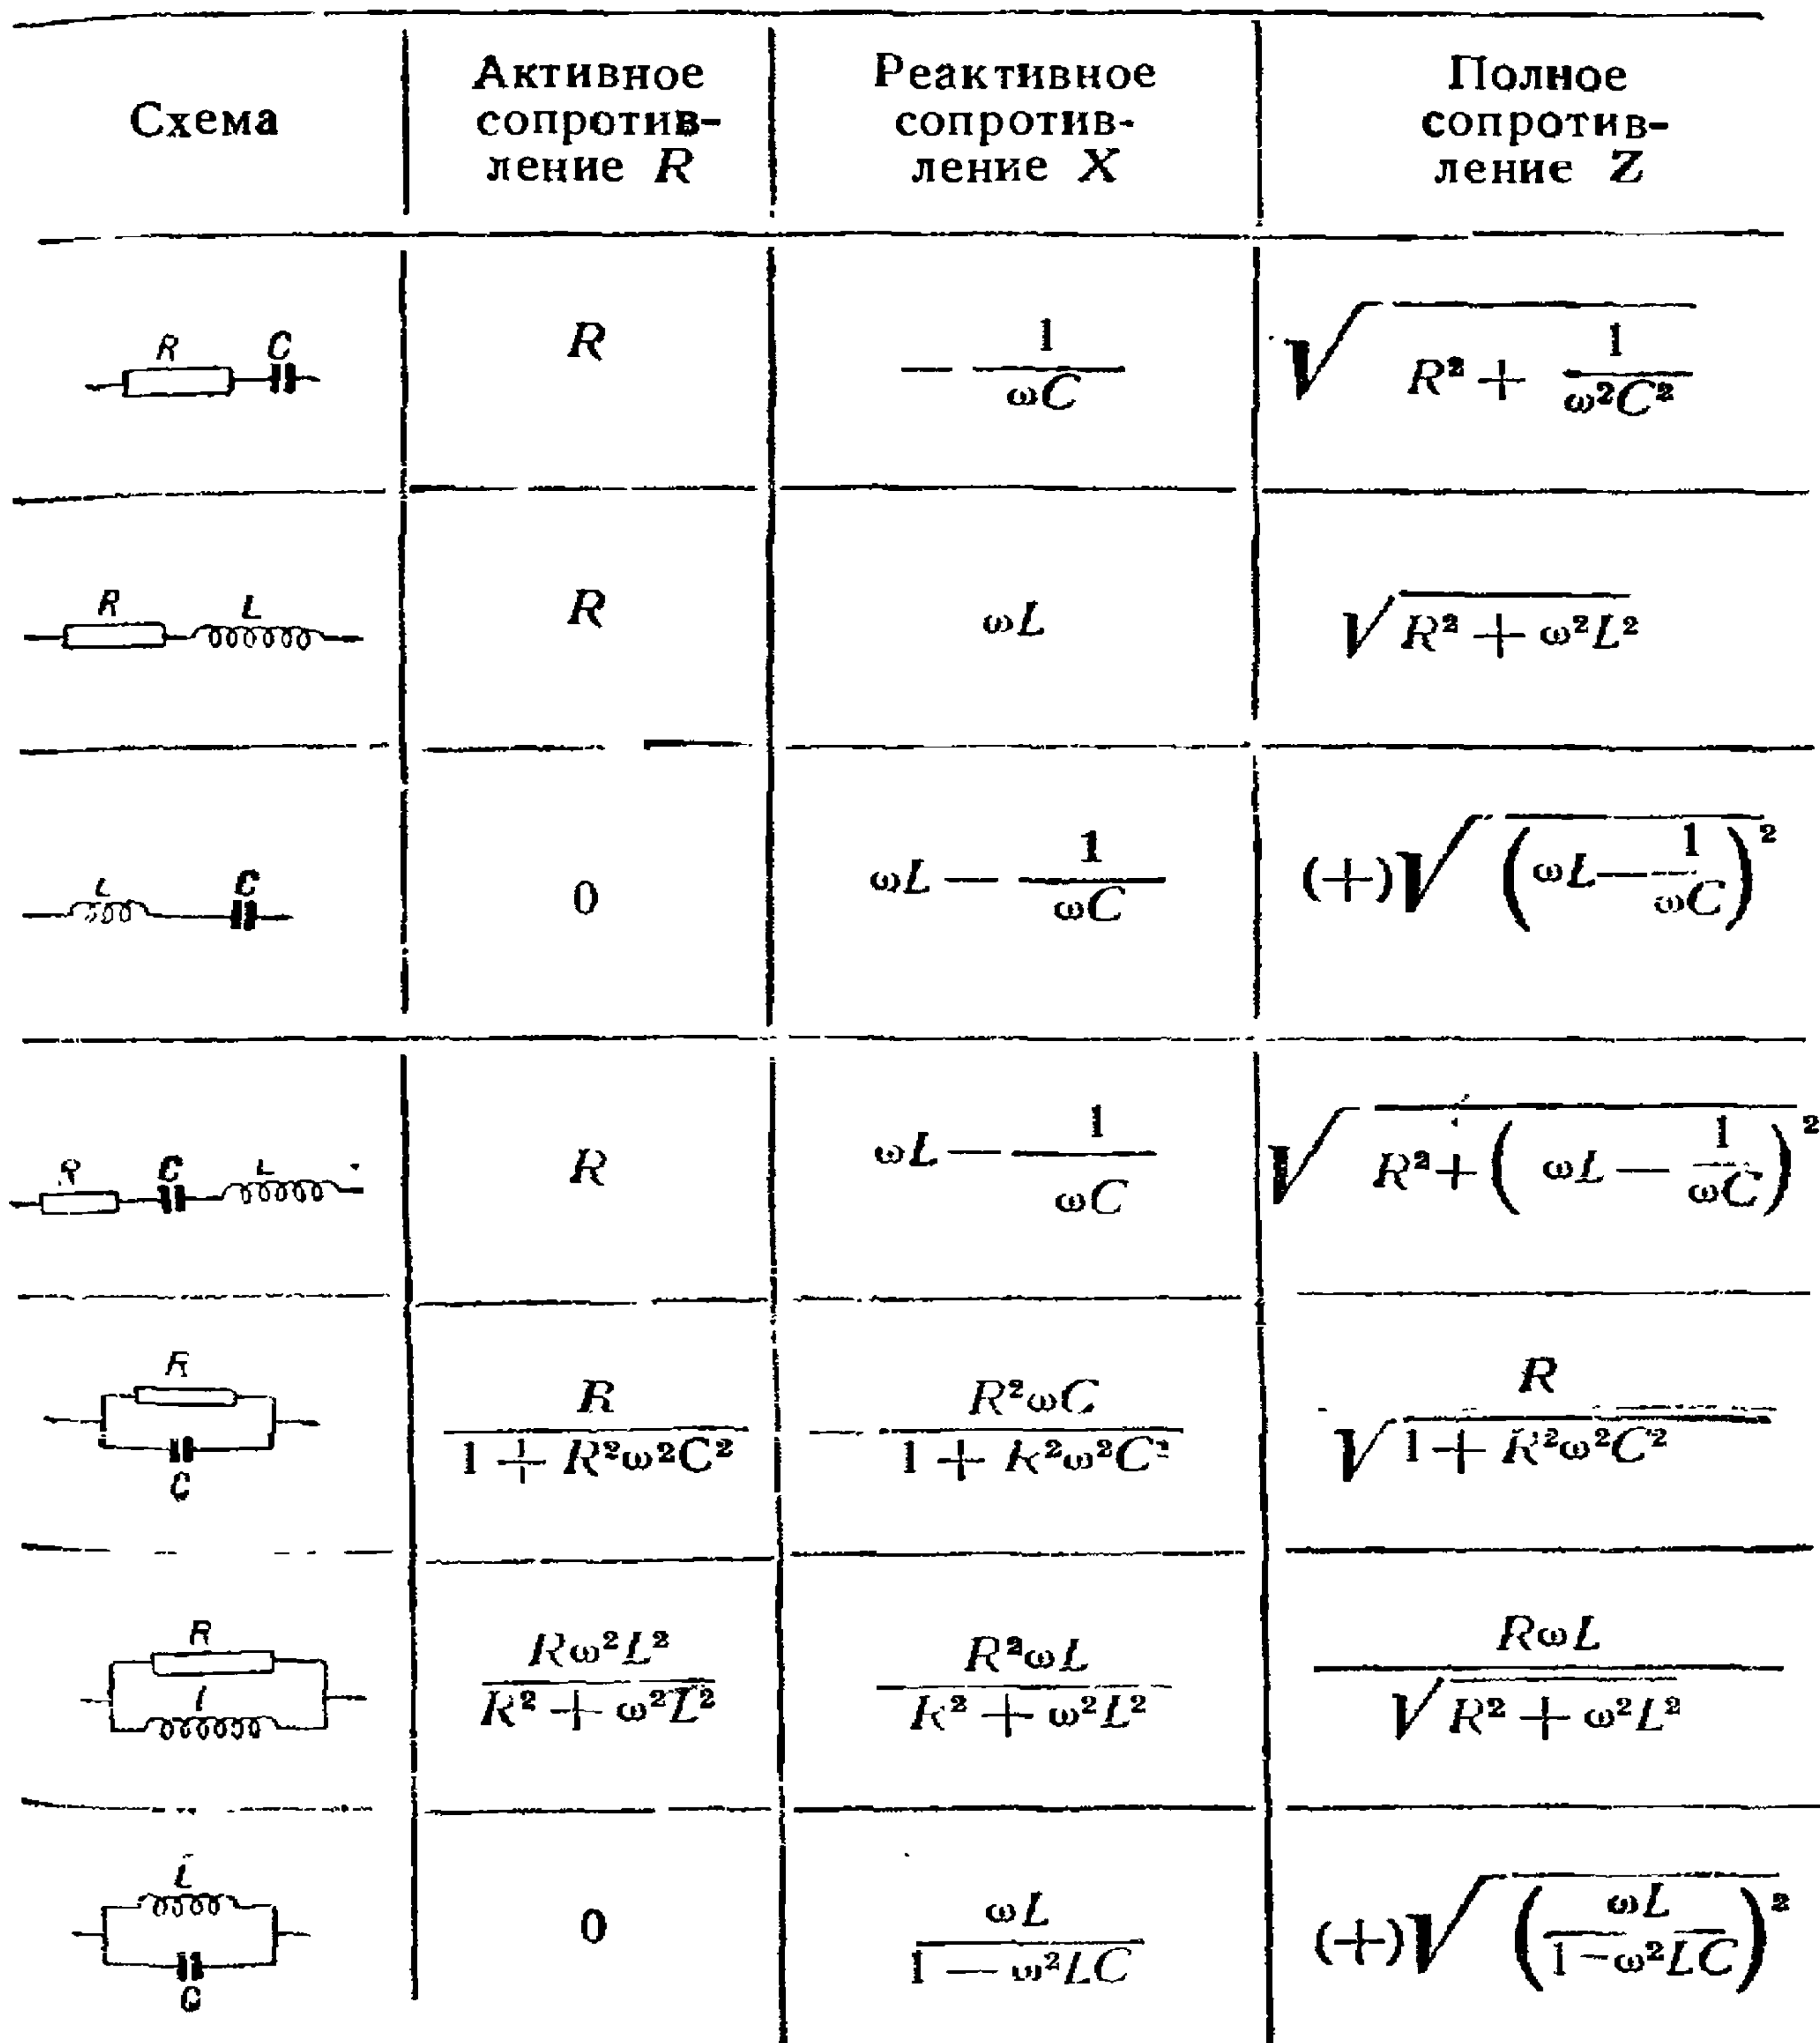 Схема
Активное
сопротив-
ление R
Реактивное
сопротив-
ление X
Полное
сопротив-
ление Z
R C
R
− 1/ωC
√(R² + 1/ω²C²)
R L
R
ωL
√(R² + ω²L²)
L C
0
ωL − 1/ωC
(+)√(ωL − 1/ωC)²
R C L
R
ωL − 1/ωC
√(R² + (ωL − 1/ωC)²)
R
C
R/(1 + R²ω²C²)
− R²ωC/(1 + R²ω²C²)
R/√(1 + R²ω²C²)
R
L
Rω²L²/(R² + ω²L²)
R²ωL/(R² + ω²L²)
RωL/√(R² + ω²L²)
L
C
0
ωL/(1 − ω²LC)
(+)√(ωL/(1 − ω²LC))²